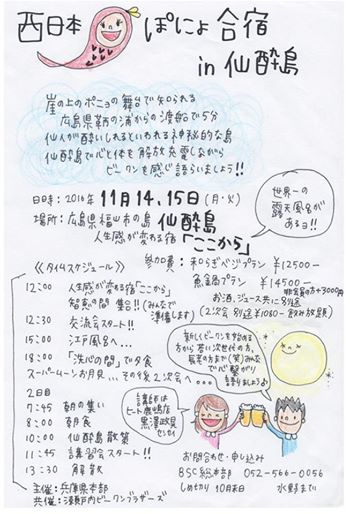 西日本 ぽにょ合宿
in 仙酔島
崖の上のポニョの舞台で知られる
広島県鞆の浦からの渡船で5分
仙人が酔いしれるといわれる神秘的な島
仙酔島で心と体を解放充電しながら
ビーワンを感じ語らいましょう!!
世界一の
露天風呂が
あるヨ!!
日時:2016年 11月14.15日(月・火)
場所:広島県福山市の島 仙酔島
人生感が変わる宿「ここから」
参加費:和らぎベジプラン ¥12500-
魚菜プラン ¥14500-
非会員の方+3000円
お酒、ジュース共に別途
(2次会 別途¥1080- 飲み放題)
《タイムスケジュール》
12:00 人生感が変わる宿「ここから」
智恵の間 集合!!(みんなで準備します)
12:30 交流会スタート!!
15:00 江戸風呂へ...
18:00 「洗心の間」で夕食
スーパームーンお月見...その後2次会へ...
新しくビーワンを始める
方から若い次世代の方、
長老の方まで(笑)みんな
で心繋がり
語りましょうよ
2日目
7:45 朝の集い
8:00 朝食
10:00 仙酔島散策
11:45 講習会スタート!!
13:30 解散
講師は
ヒート鹿嶋店
黒澤政良
センセイ
主催:兵庫県本部
共催:瀬戸内ビーワンブラザーズ
お問合わせ・申し込み
BSC総本部 052-566-0056
しめきり 10月末日 水野まで